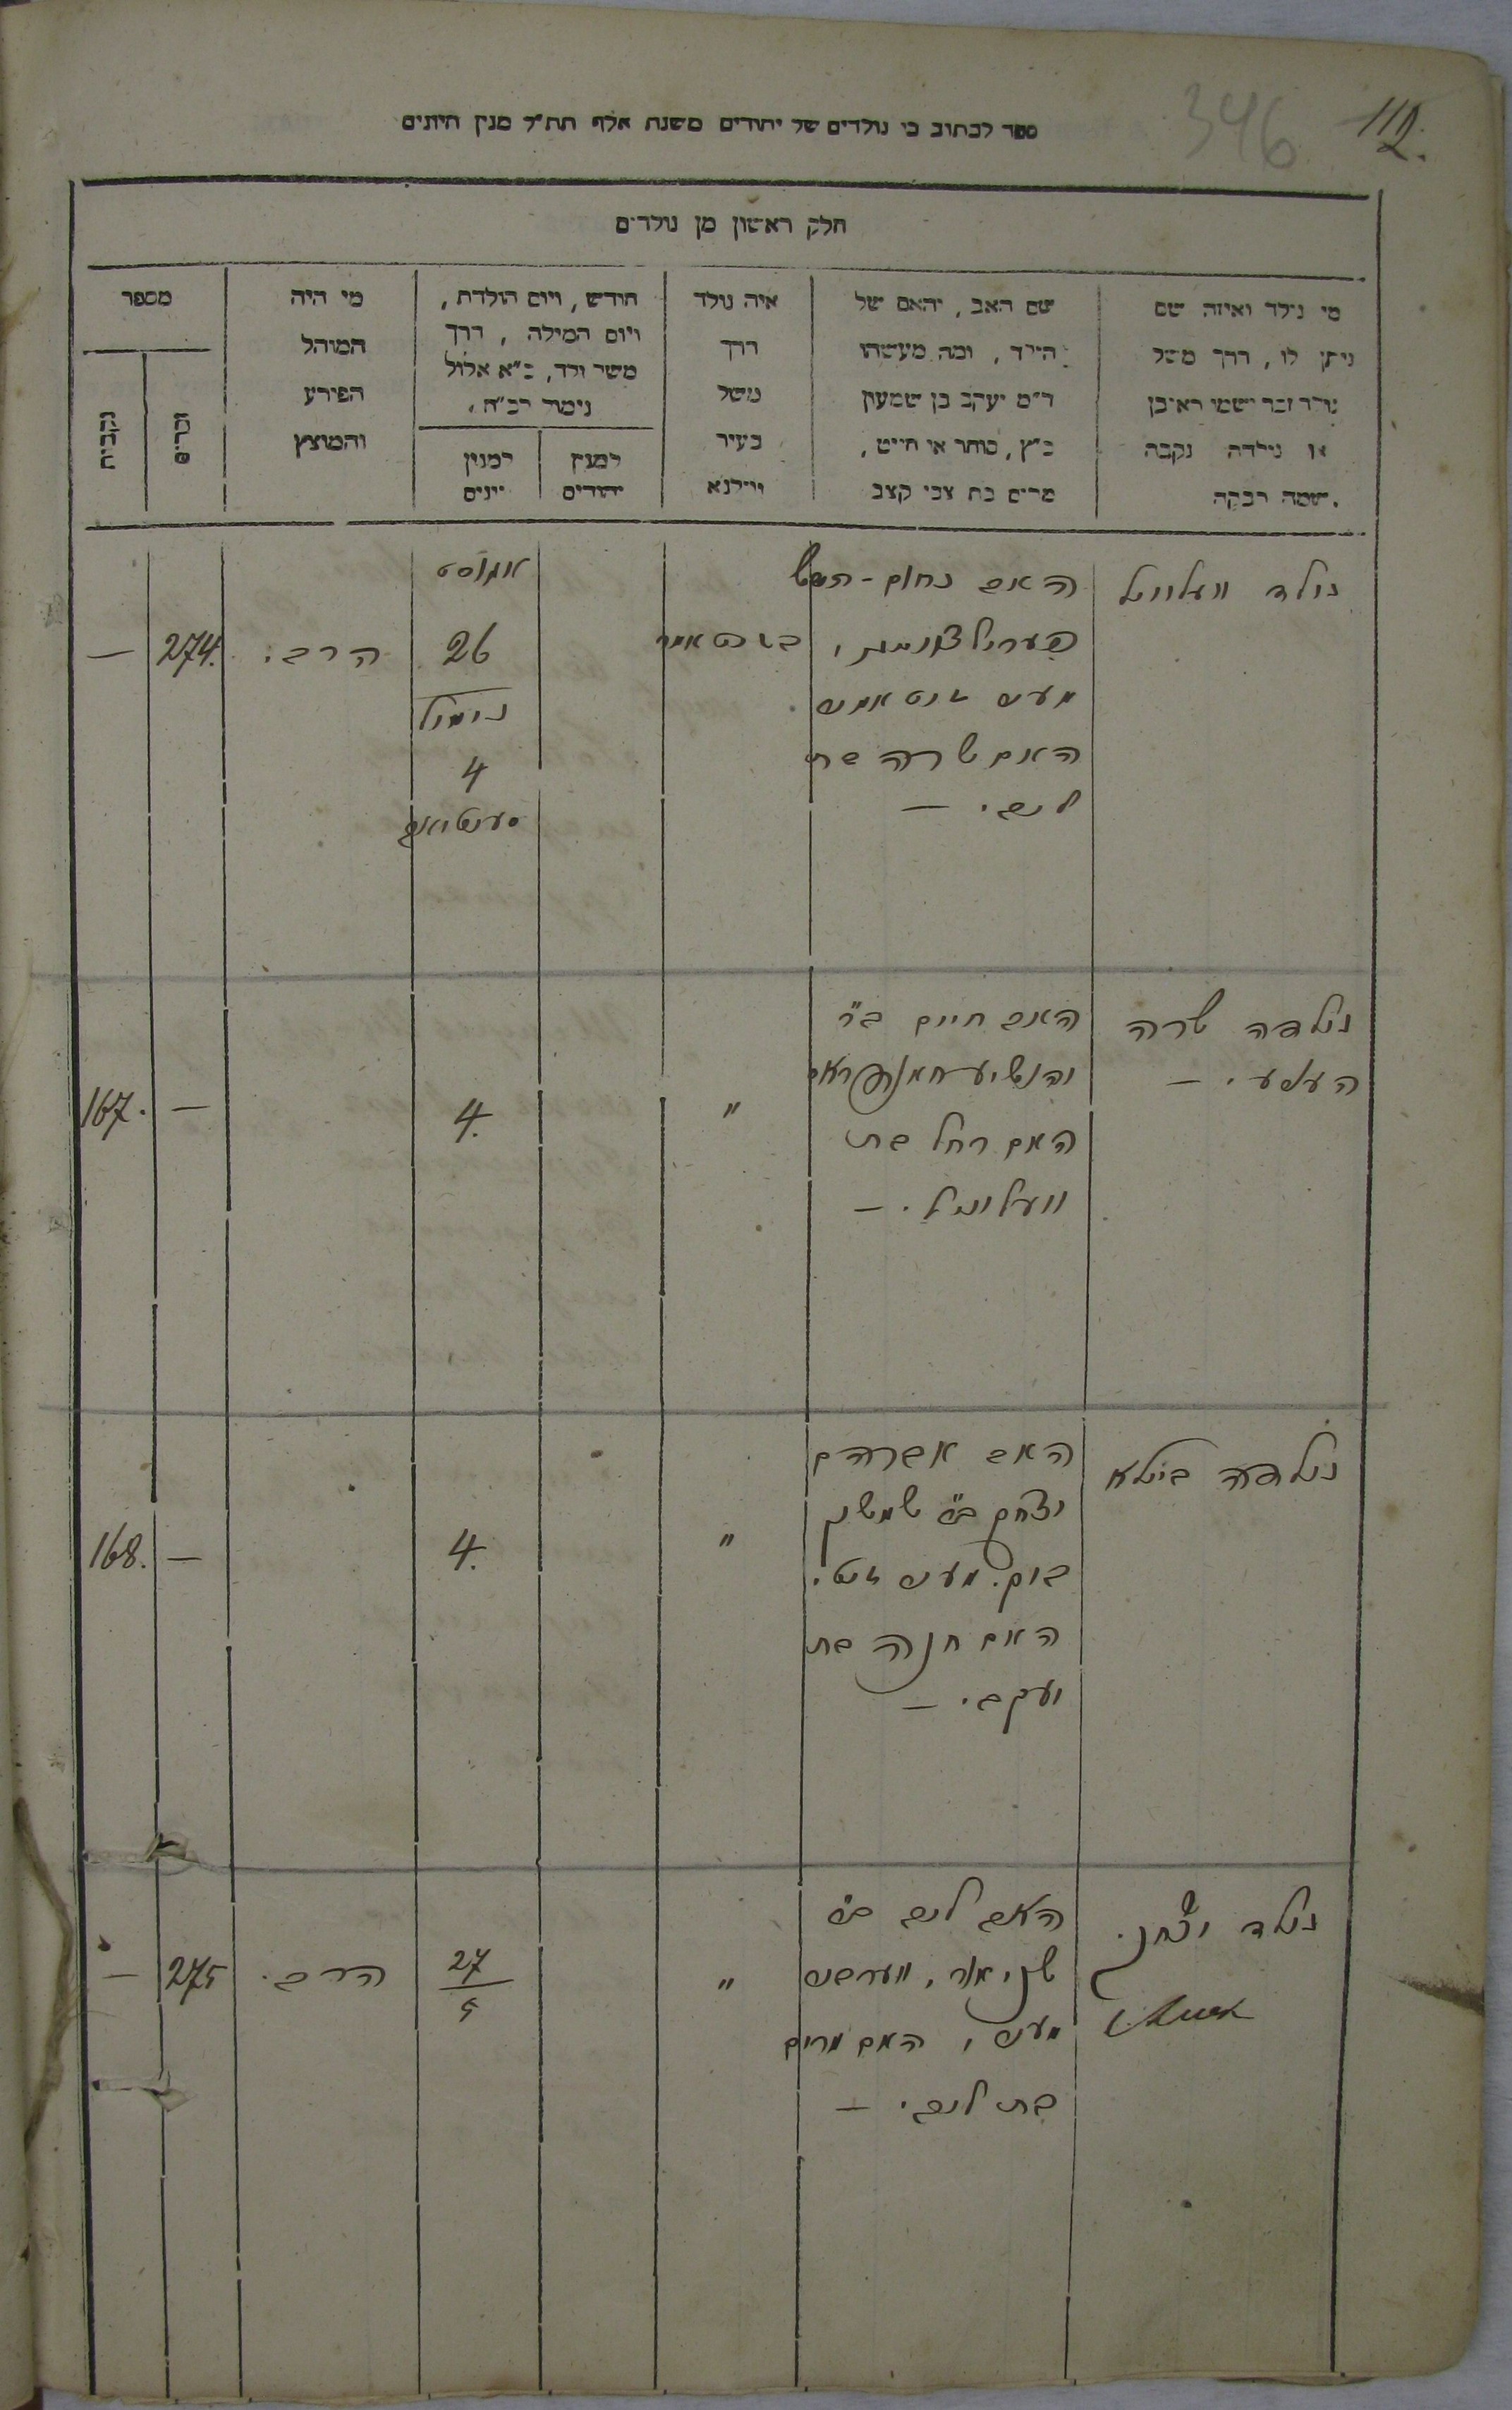 112.
346
ספר לכתוב בו נולדים של יהודים משנת אלף תת״ל מנין היונים
חלק ראשון מן נולדים
מי נולד ואיזה שם
ניתן לו, דרך משל
נולד זכר ושמו ראיבן
או נולדה נקבה
שמה רבקה.
שם האב, והאם של
הילד, ומה מעשהו
ד״מ יעקב בן שמעון
כ״ץ, סוחר או חייט,
מרים בת צבי קצב
איה נולד
דרך
משל
בעיר
ווילנא
חודש, ויום הולדת,
ויום המילה, דרך
משל ולד, כ״א אלול
נימול כ״ח,
למנין
יהודים
למנין
יונים
מי היה
המוהל
הפורע
והמוצץ
מספר
זכרים
נקבות
נולד וועלוויל
האב נחום - הירש
האם שרה בת
ליב. —
אוגוסט
26
נימול
4
סענטיאב
הרב.
274.
—
נולדה שרה
האב חיים ב״ר
האם רחל בת
וועלוויל. —
"
4.
—
167.
נולדה ביילע
האב אברהם
יצחק ב״ר שמשון
האם חנה בת
יעקב. —
"
4.
—
168.
נולד יצחק.
האב ליב ב״ר
שניאור,
האם מרים
בת ליב. —
"
27
5
הרב.
275
—